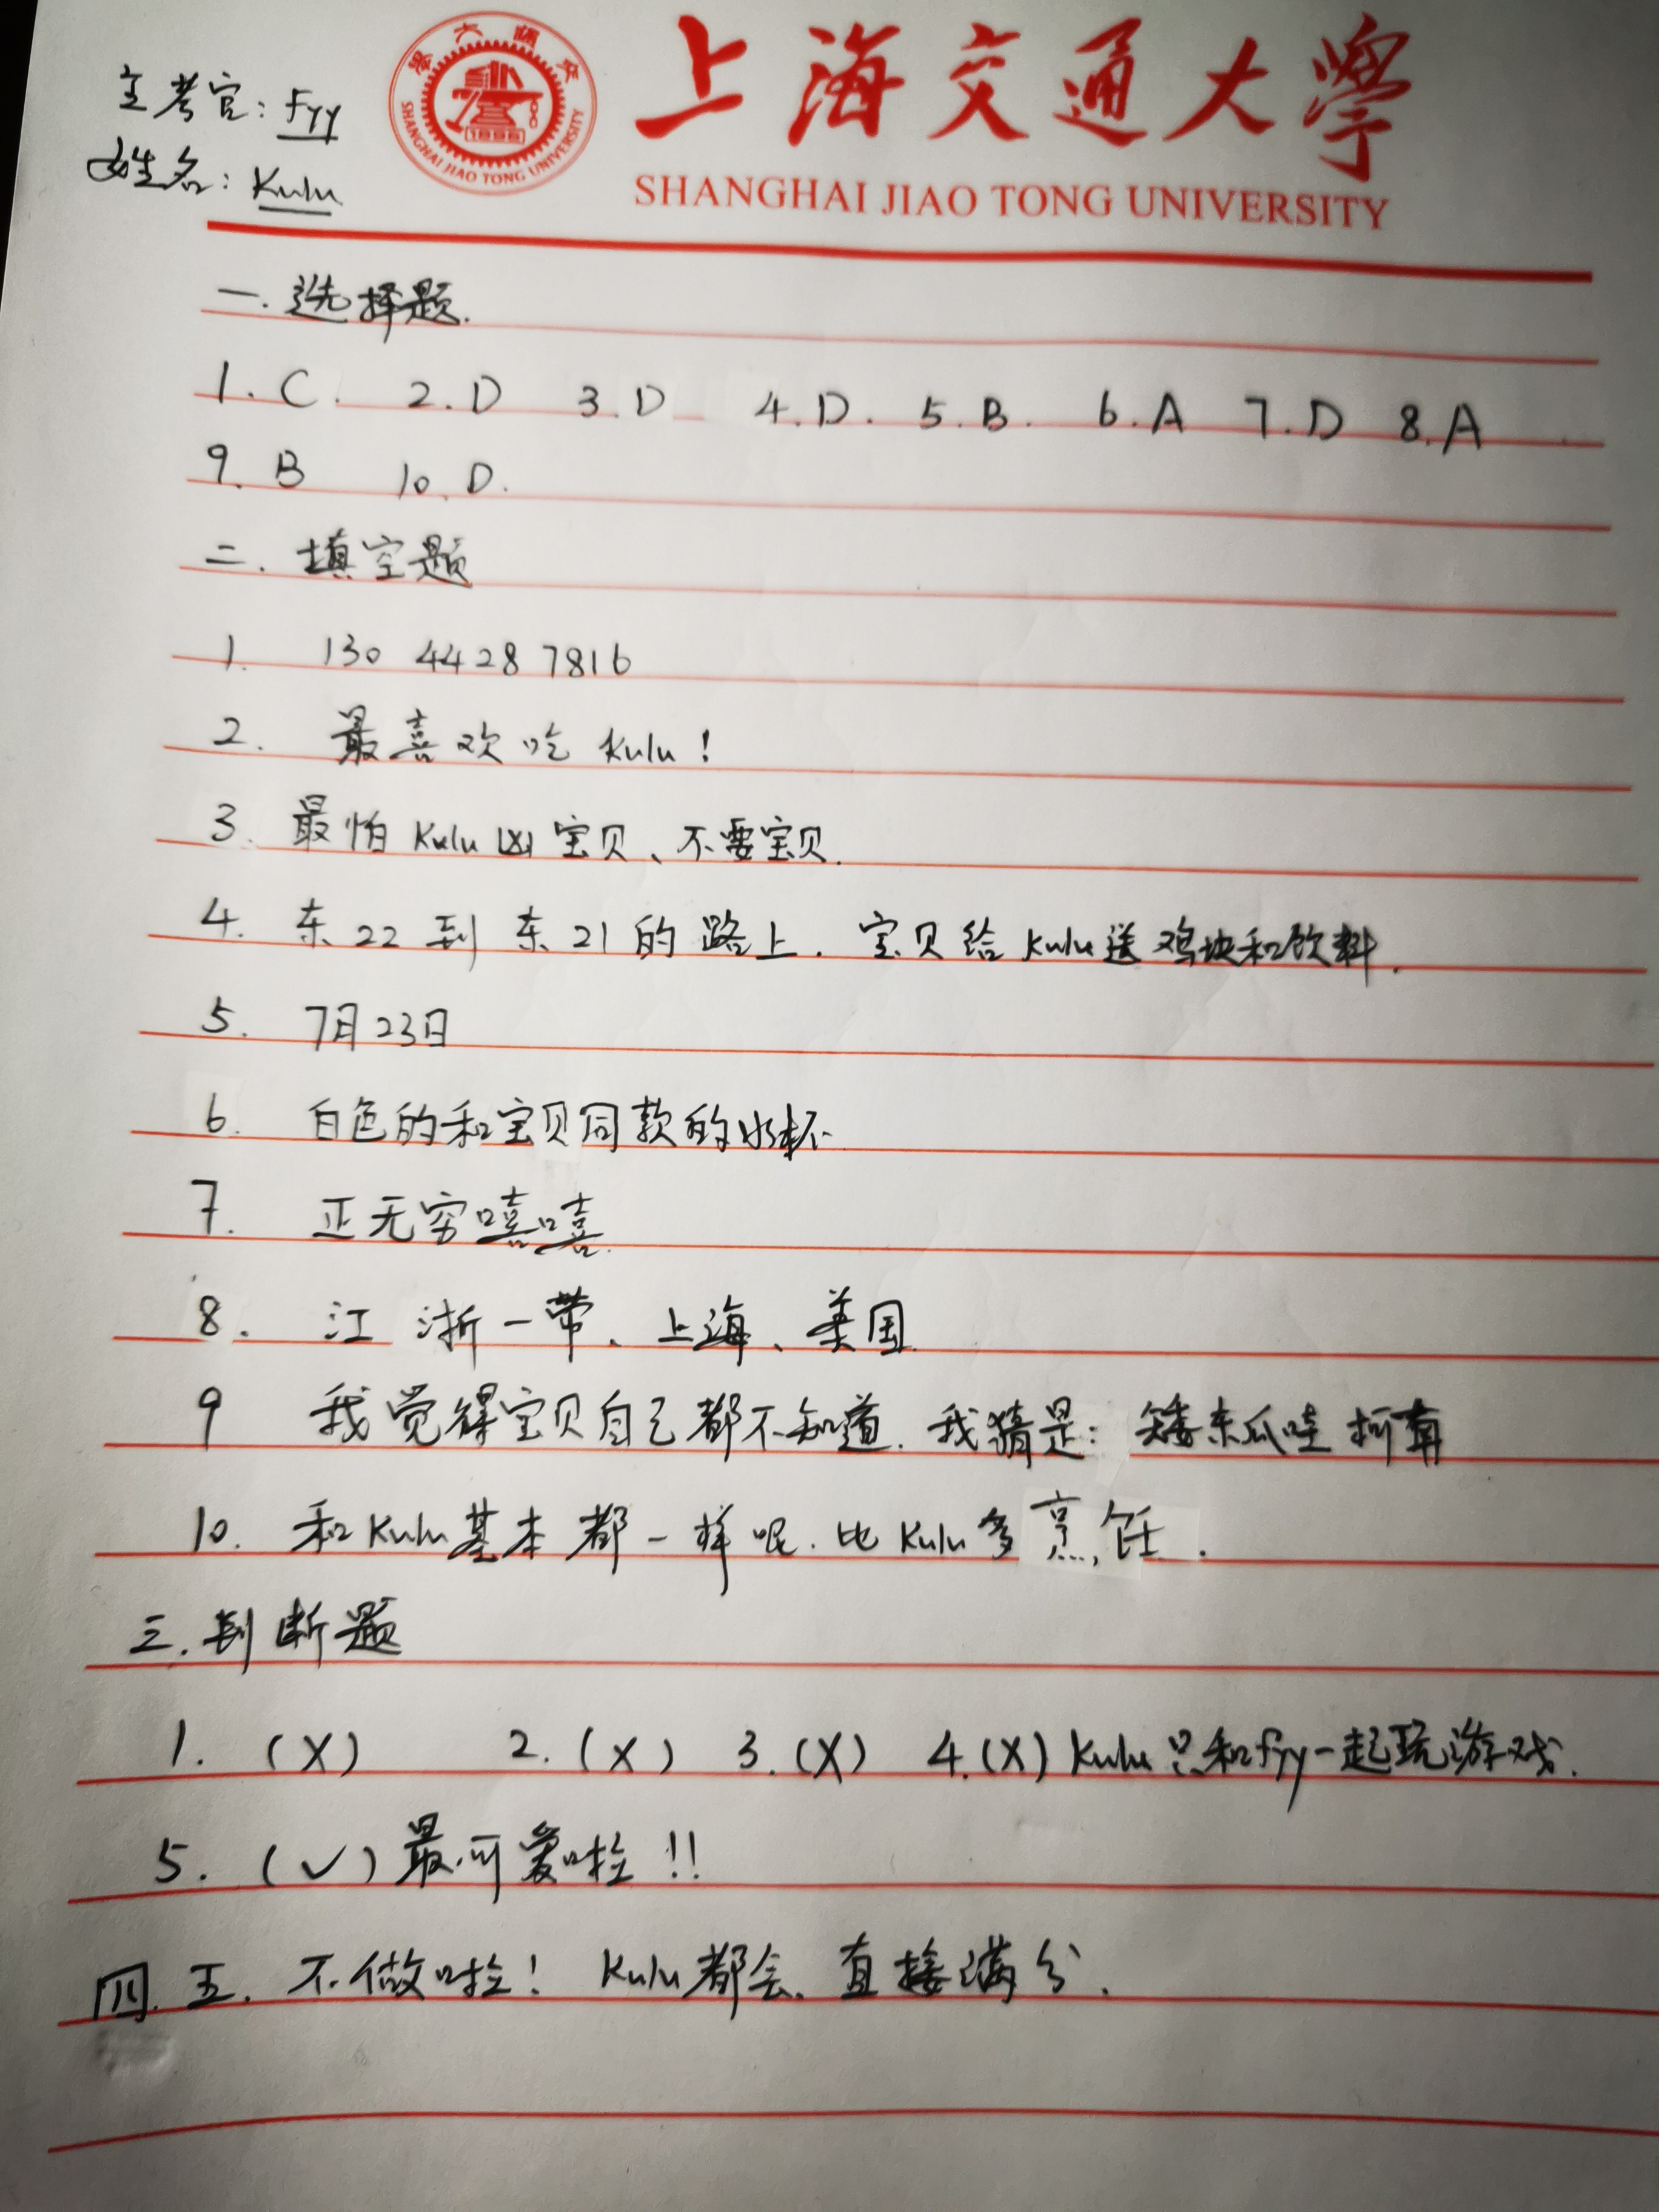 主考官：Fyy
姓名：Kulu
上海交通大学
SHANGHAI JIAO TONG UNIVERSITY
SHANGHAI JIAO TONG UNIVERSITY
1896
一.选择题.
1.C. 2.D 3.D 4.D. 5.B. 6.A 7.D 8.A
9.B 10.D.
二.填空题
1. 130 4428 7816
2. 最喜欢吃Kulu!
3. 最怕Kulu凶宝贝、不要宝贝.
4. 东22到东21的路上.宝贝给Kulu送鸡块和饮料.
5. 7月23日
6. 白色的和宝贝同款的水杯
7. 正无穷嘻嘻.
8. 江浙一带、上海、美国
9 我觉得宝贝自己都不知道.我猜是：矮东瓜哇
10. 和Kulu基本都一样呢.比Kulu多烹饪.
三.判断题
1.(X) 2.(X) 3.(X) 4.(X)Kulu只和Fyy一起玩游戏.
5.(✓)最可爱啦!!
四.五.不做啦! Kulu都会、直接满分.